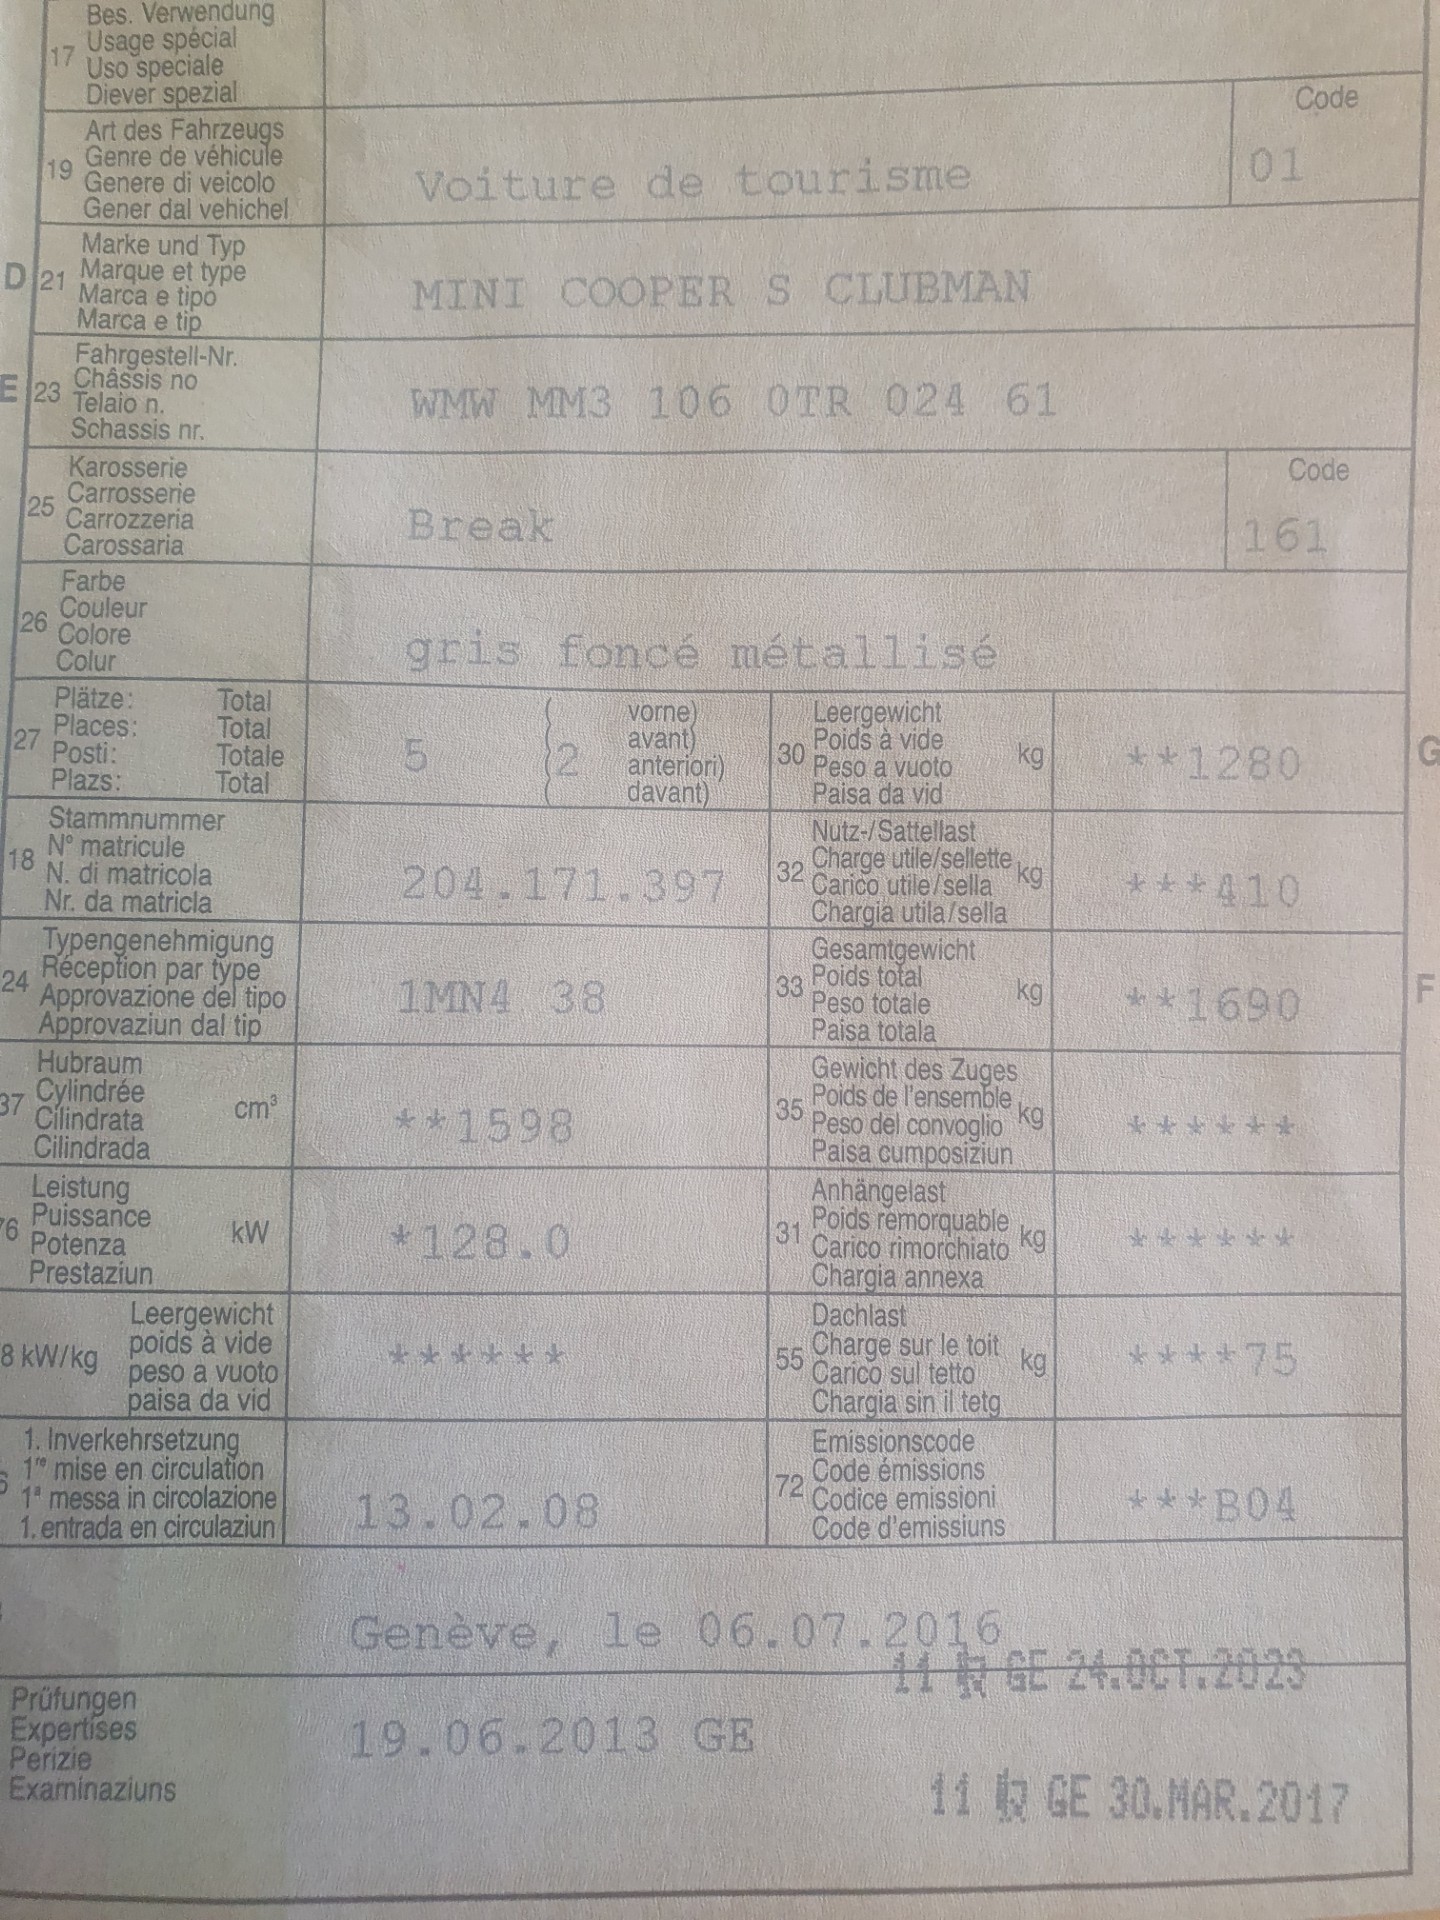 Bes. Verwendung
17 Usage spécial
Uso speciale
Diever spezial
Code
Art des Fahrzeugs
19 Genre de véhicule
Genere di veicolo
Gener dal vehichel
Voiture de tourisme
01
Marke und Typ
D 21 Marque et type
Marca e tipo
Marca e tip
MINI COOPER S CLUBMAN
Fahrgestell-Nr.
E 23 Châssis no
Telaio n.
Schassis nr.
WMW MM3 106 0TR 024 61
Karosserie
25 Carrosserie
Carrozzeria
Carossaria
Break
Code
161
Farbe
26 Couleur
Colore
Colur
gris foncé métallisé
Plätze: Total
27 Places: Total
Posti: Totale
Plazs: Total
5 ( 2
vorne)
avant)
anteriori)
davant)
Leergewicht
30 Poids à vide kg
Peso a vuoto
Paisa da vid
**1280
G
Stammnummer
18 N° matricule
N. di matricola
Nr. da matricla
204.171.397
Nutz-/Sattellast
32 Charge utile/sellette kg
Carico utile/sella
Chargia utila/sella
***410
Typengenehmigung
24 Réception par type
Approvazione del tipo
Approvaziun dal tip
1MN4 38
Gesamtgewicht
33 Poids total kg
Peso totale
Paisa totala
**1690
F
Hubraum
37 Cylindrée cm³
Cilindrata
Cilindrada
**1598
Gewicht des Zuges
35 Poids de l'ensemble kg
Peso del convoglio
Paisa cumposiziun
******
Leistung
76 Puissance kW
Potenza
Prestaziun
*128.0
Anhängelast
31 Poids remorquable kg
Carico rimorchiato
Chargia annexa
******
Leergewicht
8 kW/kg poids à vide
peso a vuoto
paisa da vid
******
Dachlast
55 Charge sur le toit kg
Carico sul tetto
Chargia sin il tetg
****75
1. Inverkehrsetzung
1re mise en circulation
1a messa in circolazione
1. entrada en circulaziun
13.02.08
Emissionscode
72 Code émissions
Codice emissioni
Code d'emissiuns
***B04
Genève, le 06.07.2016
11 GE 24.OCT.2023
Prüfungen
Expertises
Perizie
Examinaziuns
19.06.2013 GE
11 GE 30.MAR.2017